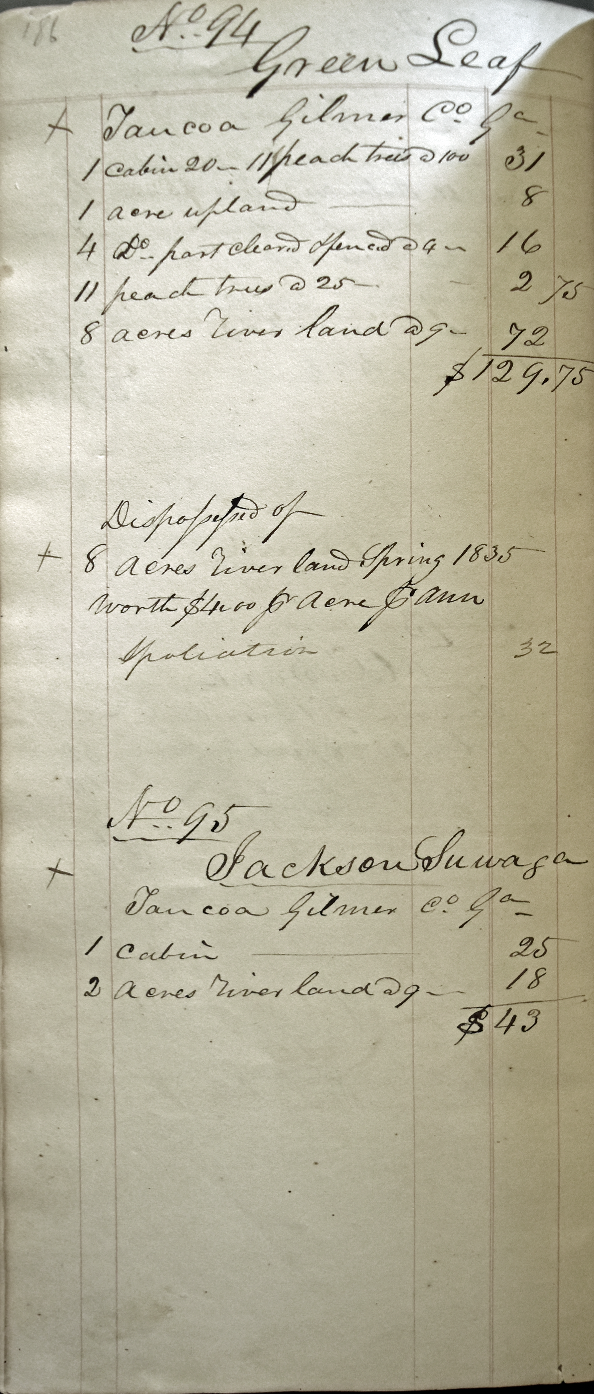 186
No. 94
Green Leaf
+ Taucoa Gilmer Co Ga
1 cabin 20 — 11 peach trees @ 100 31
1 acre upland — 8
4 Do. part cleard & fenced @ 4 — 16
11 peach trees @ 25 — 2 75
8 acres River land @ 9 — 72
$129.75
Dispossessed of
+ 8 Acres River land Spring 1835
worth $4.00 pr Acre pr Ann
Spoliation 32
No 95
+ Jackson Suwaga
Taucoa Gilmer Co Ga
1 cabin — 25
2 acres River land @ 9 — 18
$43